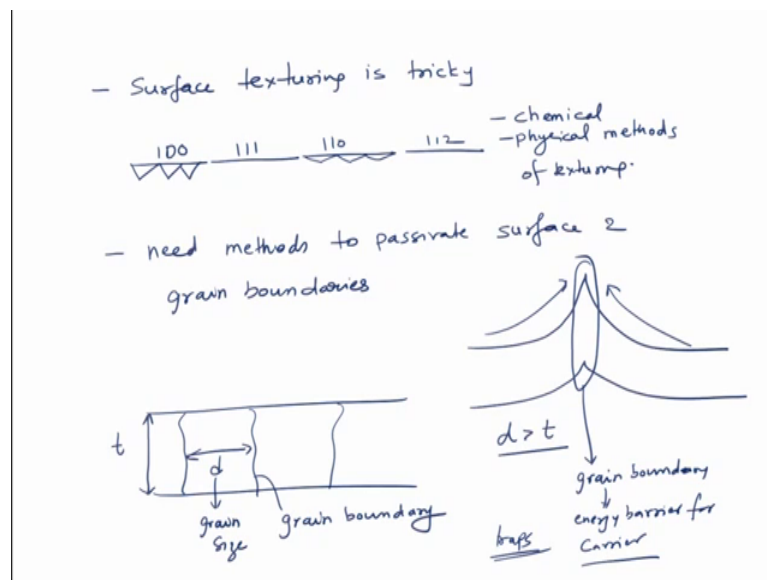 - Surface texturing is tricky
100 111 110 112
- chemical
- physical methods
of texturing.
- need methods to passivate surface &
grain boundaries
t
d
grain
size
grain boundary
d > t
grain boundary
energy barrier for
carrier
traps